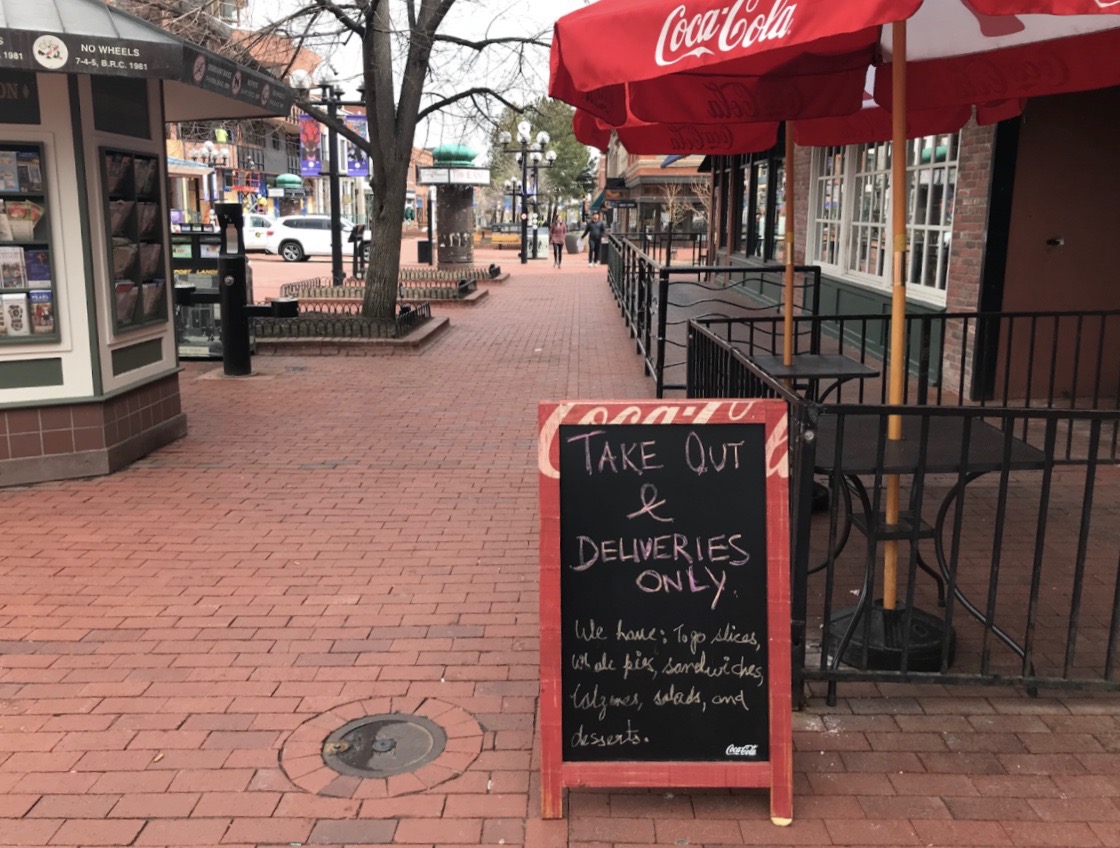 Coca-Cola
NO WHEELS
7-4-5, B.R.C. 1981
1981
Coca-Cola
TAKE OUT
&
DELIVERIES
ONLY.
We have: Togo slices,
Whole pies, sandwiches,
Calzones, salads, and
desserts.
Coca-Cola